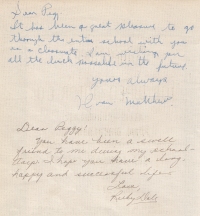 Dear Peg,
It has been a great pleasure to go
through the entire school with you
as a classmate. I am wishing you
all the luck possible in the future.
Yours always

Dear Peggy:
You have been a swell
friend to me during my school-
days. I hope you have a long,
happy and successful life.
Love,